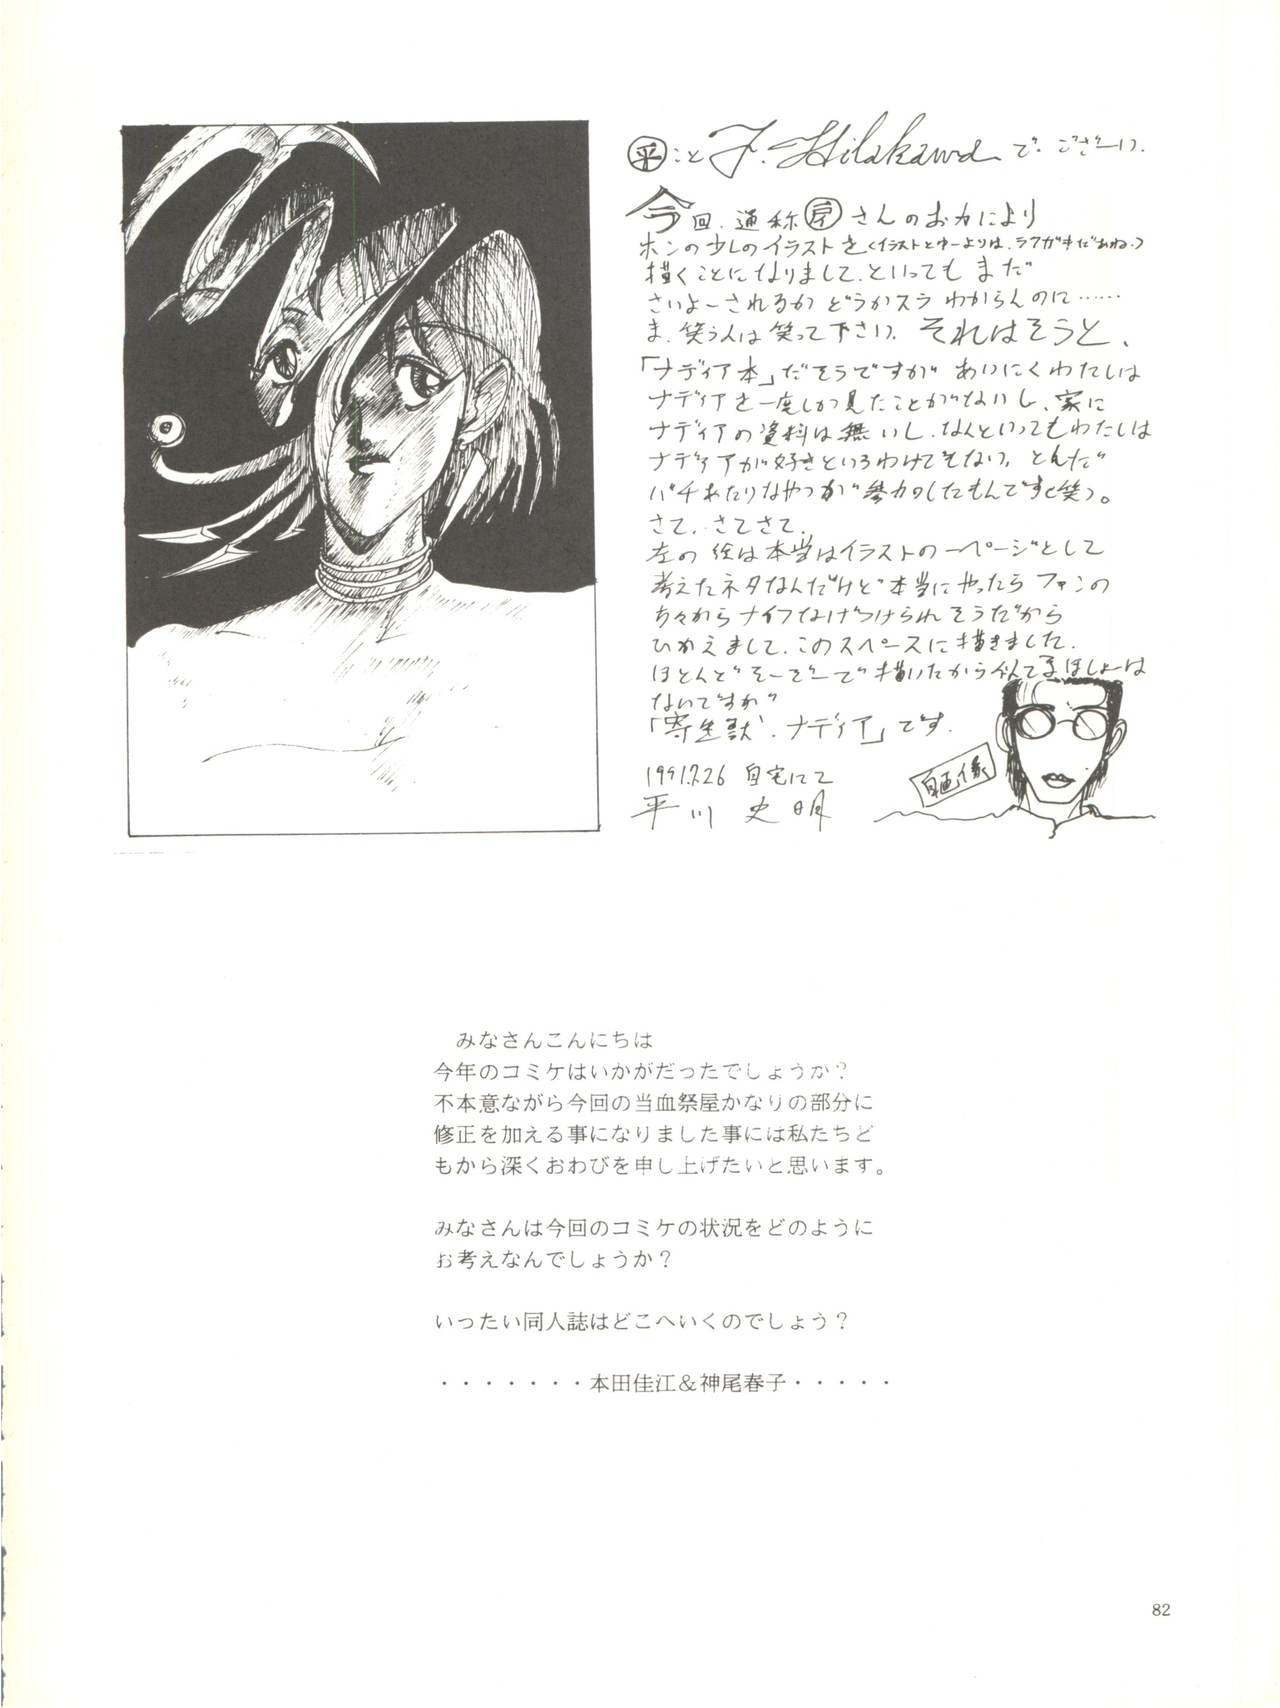 ㊥こと F. Hilakawa で ございー。
今回、通称 さんのお力により
ホンの少しのイラストを(イラストとゆーよりは、ラクガキだあね。)
描くことになりまして、といっても まだ
さいよーされるか どうかスラ わからんのに……
ま、笑う人は笑って下さい。それはそうと、
「ナディア本」だそうですが あいにくわたしは
ナディアを一度しか見たことがないし、家に
ナディアの資料は無いし、なんといってもわたしは
ナディアが好きというわけでもない。とんだ
バチあたりなやつが参加したもんです(笑)。
さて、さてさて、
左の絵は本当はイラストの一ページとして
考えたネタなんだけど本当にやったら ファンの
方々からナイフなげつけられそうだから
ひかえまして、このスペースに描きました。
ほとんどそーぞーで描いたから似てるほしょーは
ないですが
「寄生獣・ナディア」です。
1991.7.26 自宅にて
平川 史明
自画像
みなさんこんにちは
今年のコミケはいかがだったでしょうか？
不本意ながら今回の当血祭屋かなりの部分に
修正を加える事になりました事には私たちど
もから深くおわびを申し上げたいと思います。
みなさんは今回のコミケの状況をどのように
お考えなんでしょうか？
いったい同人誌はどこへいくのでしょう？
・・・・・・・本田佳江＆神尾春子・・・・・
82